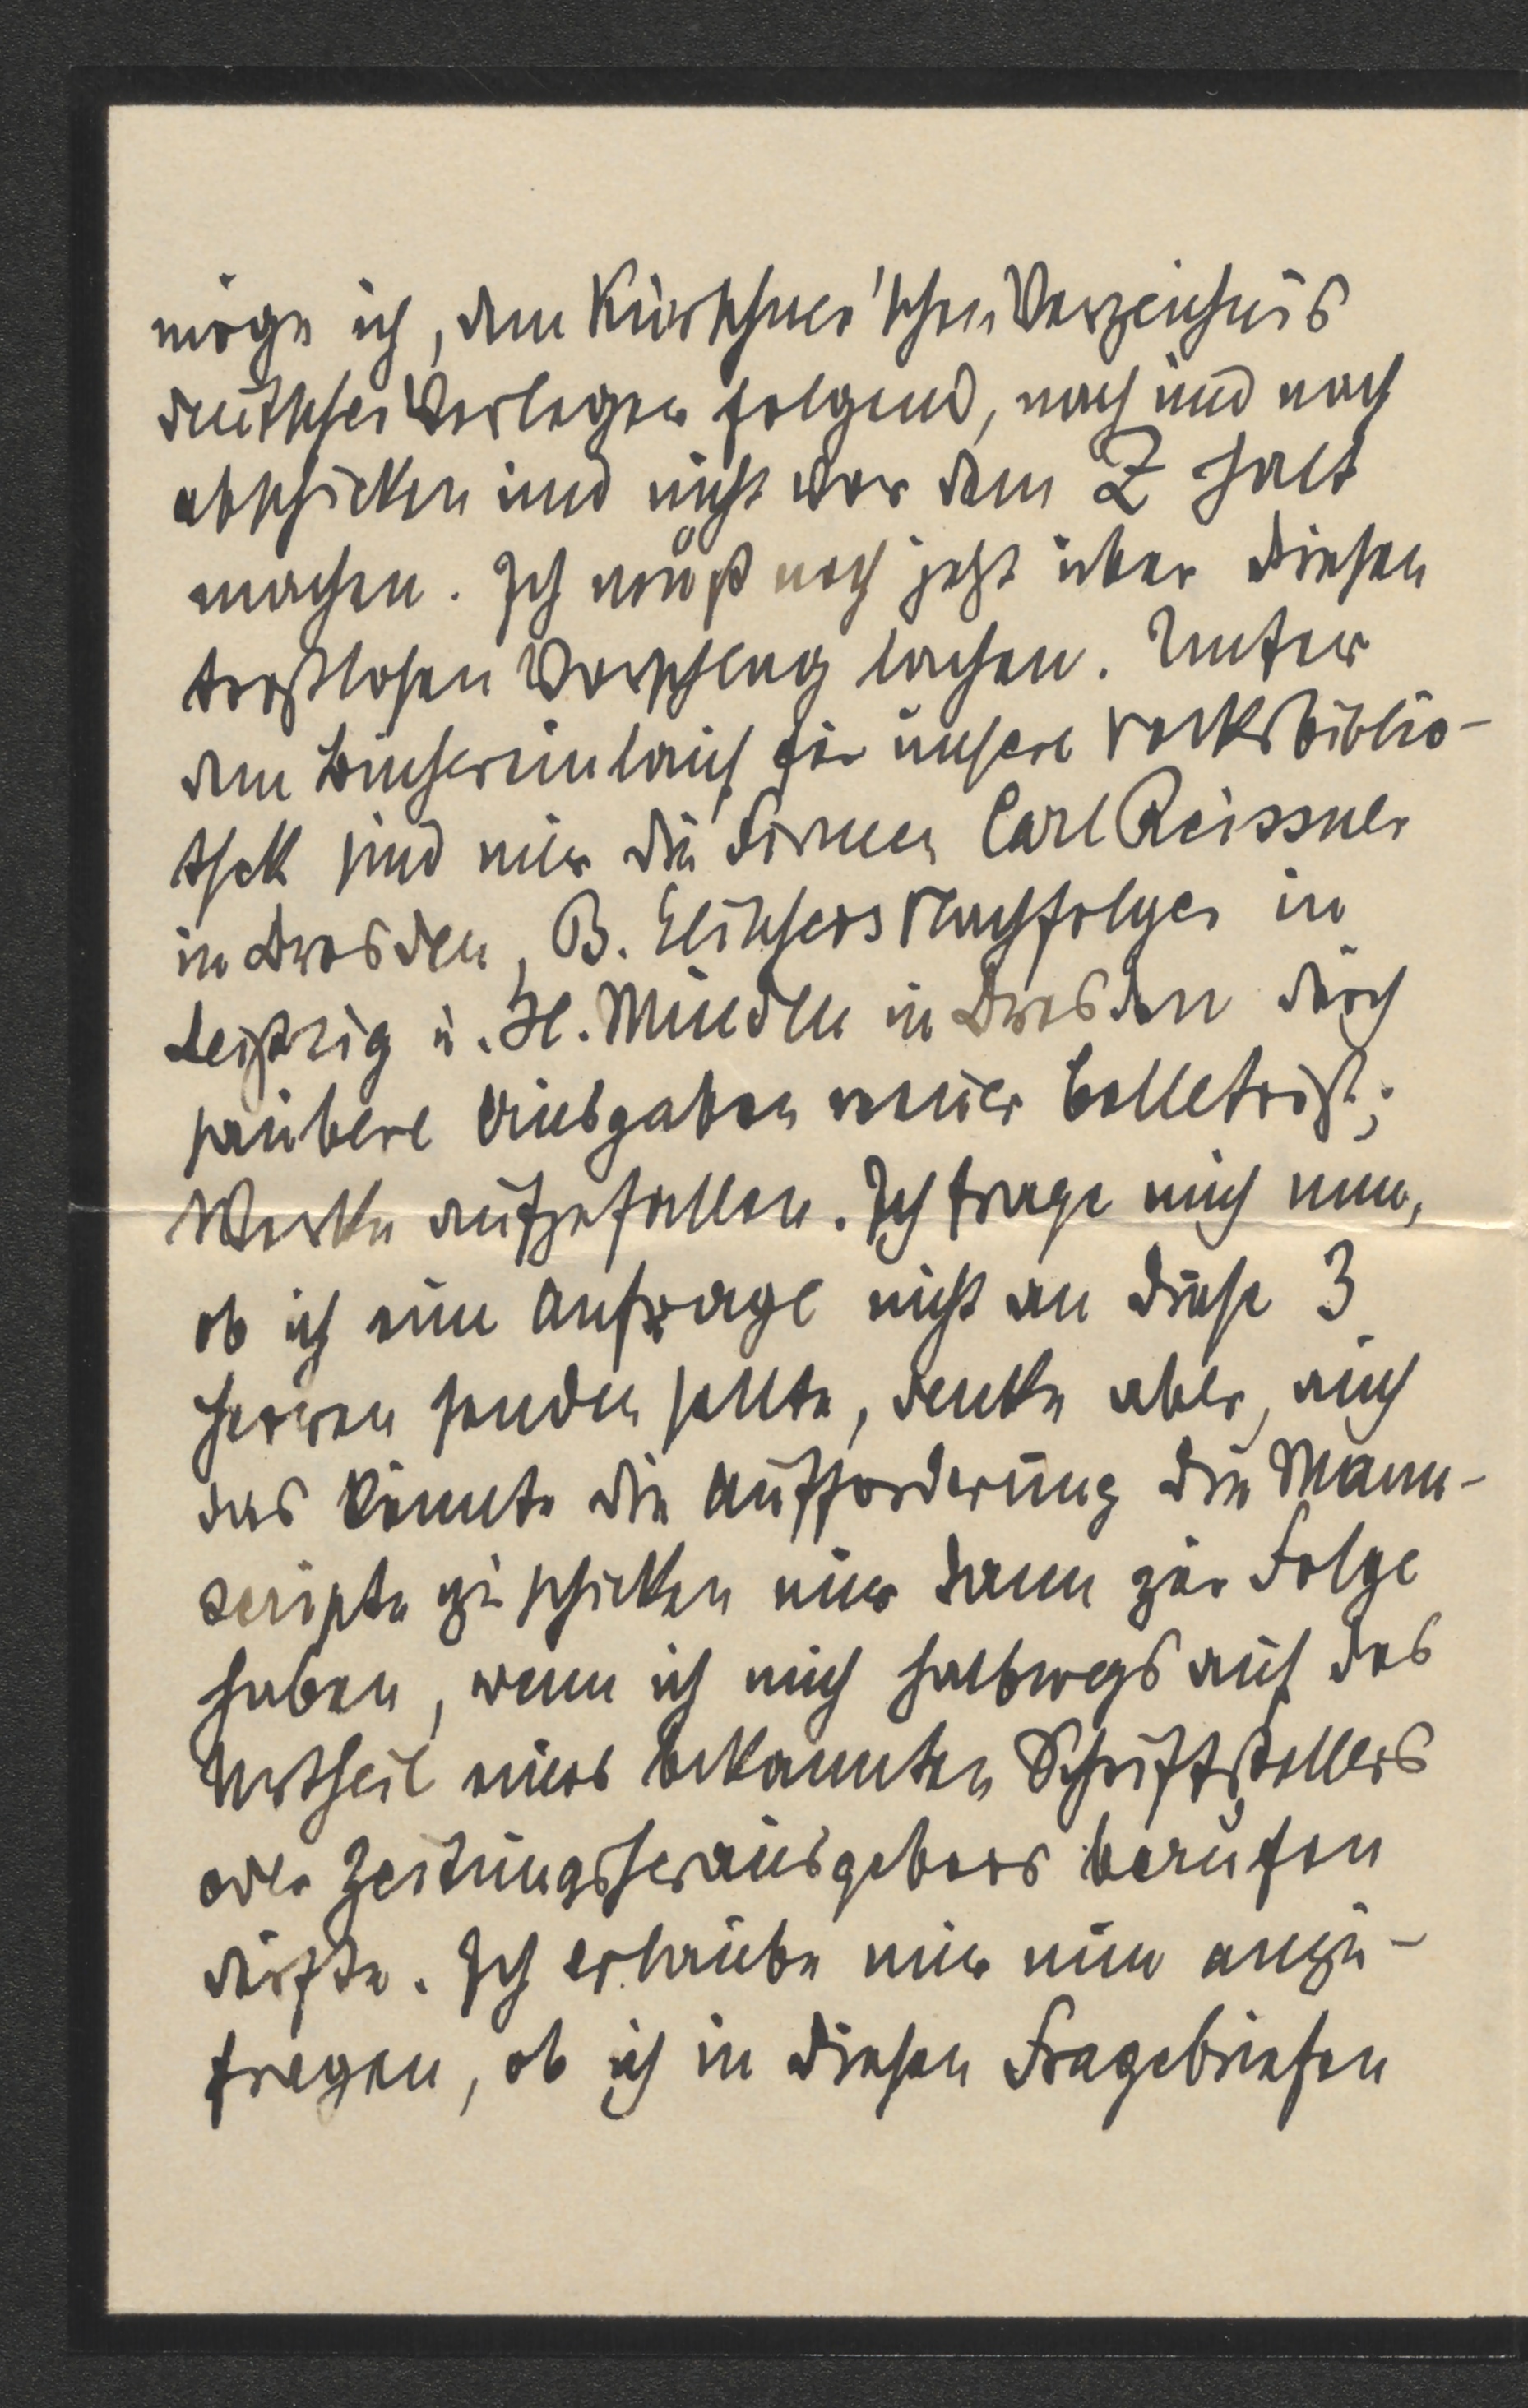 möge ich, dem Kürschner'schen Verzeichnis
deutscher Verleger folgend, nach und nach
abschicken und nicht vor dem Z halt
machen. Ich muß noch jetzt über diesen
trostlosen Vorschlag lachen. Unter
dem Büchereinlauf für unsere Volksbiblio-
thek sind mir die Firmen Carl Reissner
in Dresden, B. Elischers Nachfolger in
Leipzig u. H. Minden in Dresden durch
saubere Ausgaben neuer belletrist.
Werke aufgefallen. Ich frage mich nun,
ob ich eine Anfrage nicht an diese 3
Herren senden sollte, denke aber, auch
das könnte die Aufforderung die Manu-
scripte zu schicken nur dann zur Folge
haben, wenn ich mich halbwegs auf das
Urtheil eines bekannten Schriftstellers
oder Zeitungsherausgebers berufen
dürfte. Ich erlaube mir nun anzu-
fragen, ob ich in diesen Fragebriefen